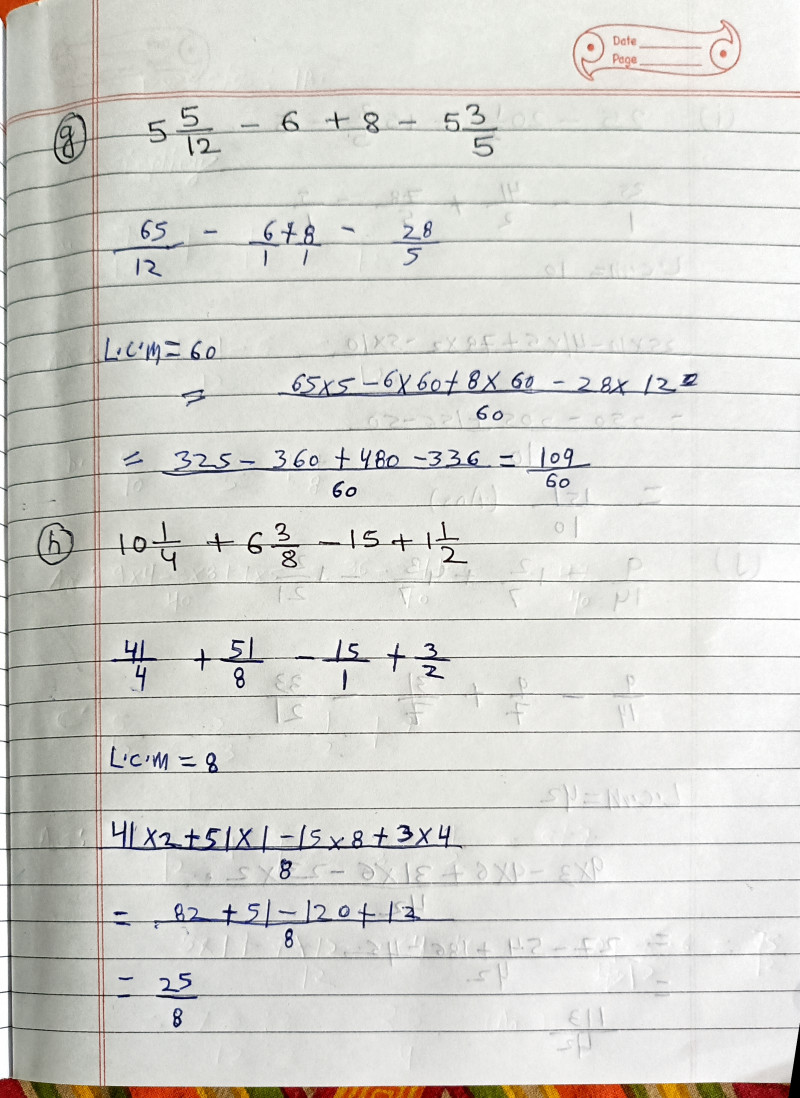 Date
Page
(g) 5 5/12 - 6 + 8 - 5 3/5
65/12 - 6/1 + 8/1 - 28/5
L.C.M = 60
= 65x5 - 6x60 + 8x60 - 28x12 = / 60
= 325 - 360 + 480 - 336 / 60 = 109/60
(h) 10 1/4 + 6 3/8 - 15 + 1 1/2
41/4 + 51/8 - 15/1 + 3/2
L.C.M = 8
41x2 + 51x1 - 15x8 + 3x4 / 8
= 82 + 51 - 120 + 12 / 8
= 25/8